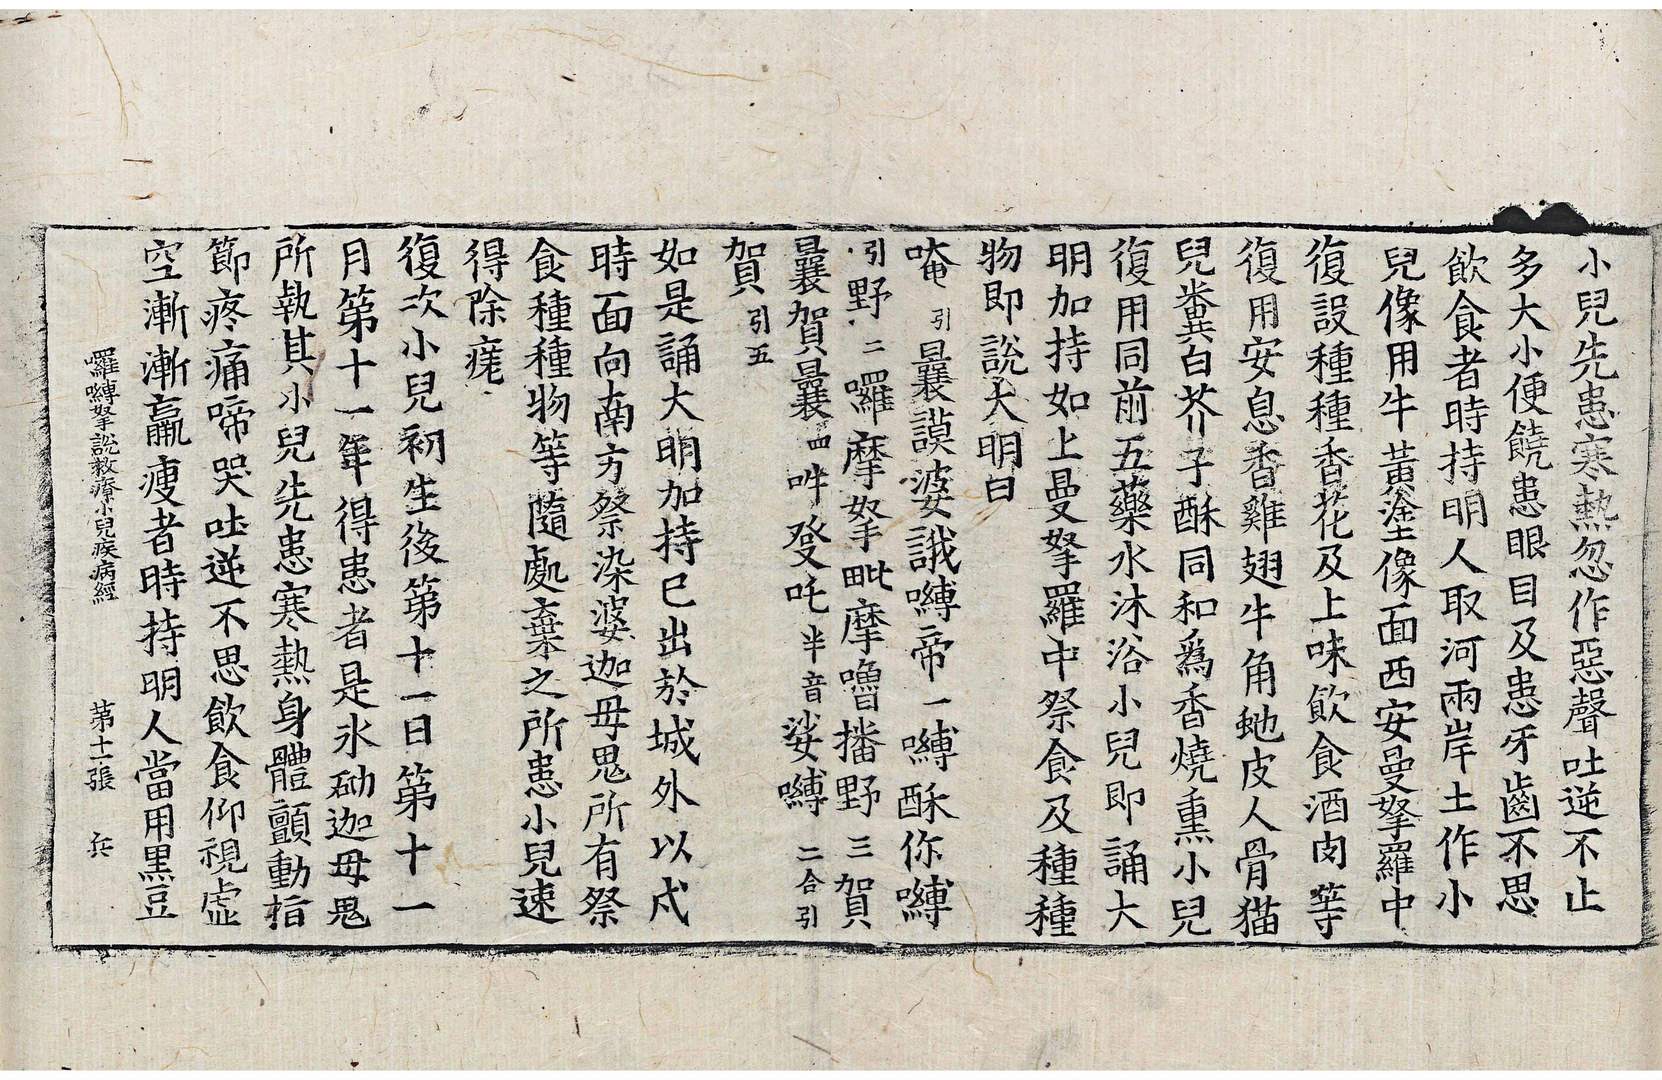 小兒先患寒熱忽作惡聲吐逆不止
多大小便饒患眼目及患牙齒不思
飲食者時持明人取河兩岸土作小
兒像用牛黃塗像面西安曼拏羅中
復設種種香花及上味飲食酒肉等
復用安息香雞翅牛角虵皮人骨猫
兒糞白芥子酥同和爲香燒熏小兒
復用同前五藥水沐浴小兒即誦大
明加持如上曼拏羅中祭食及種種
物即說大明曰
唵引曩謨婆誐嚩帝一嚩酥你嚩
引野二囉摩拏毗摩嚕播野三賀
曩賀曩四吽發吒半音娑嚩二合引
賀引五
如是誦大明加持已出於城外以戍
時面向南方祭染婆迦毋鬼所有祭
食種種物等隨處棄之所患小兒速
得除瘥
復次小兒初生後第十一日第十一
月第十一年得患者是氷砌迦毋鬼
所執其小兒先患寒熱身體顫動指
節疼痛啼哭吐逆不思飲食仰視虛
空漸漸羸瘦者時持明人當用黑豆
囉嚩拏說救療小兒疾病經 第十一張 兵